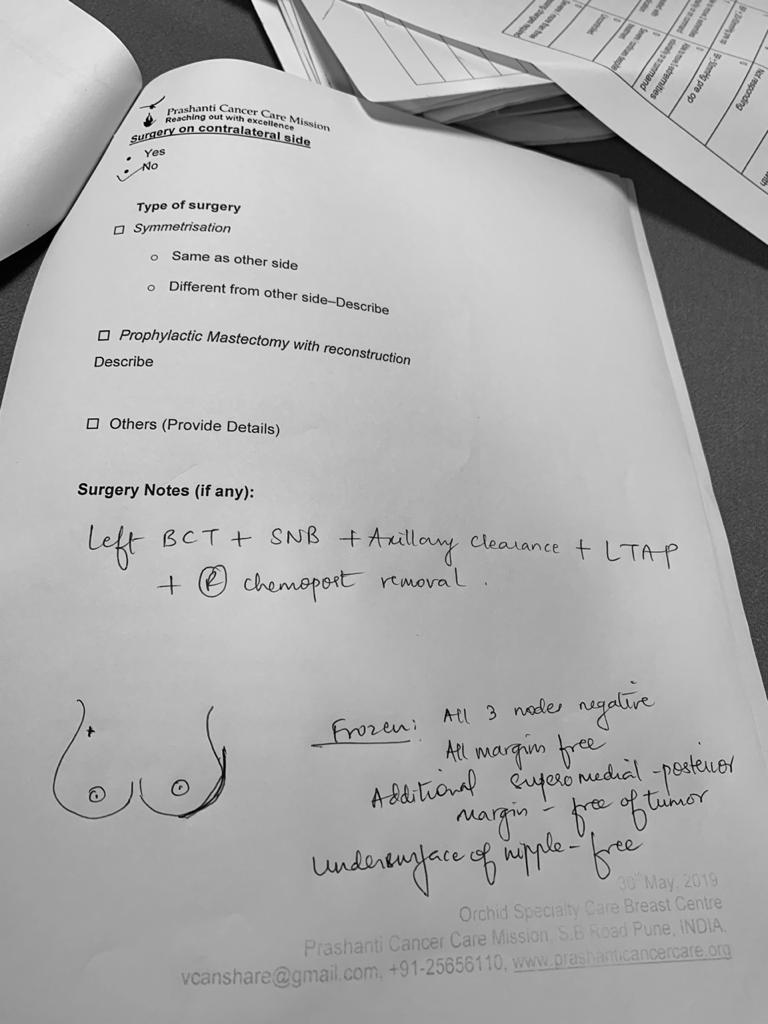 Prashanti Cancer Care Mission
Reaching out with excellence
Surgery on contralateral side
• Yes
• No
Type of surgery
☐ Symmetrisation
○ Same as other side
○ Different from other side–Describe
☐ Prophylactic Mastectomy with reconstruction
Describe
☐ Others (Provide Details)
Surgery Notes (if any):
Left BCT + SNB + Axillary clearance + LTAP
+ Ⓡ chemoport removal.
Frozen: All 3 nodes negative
All margins free
Additional superomedial-posterior
margin – free of tumor
Undersurface of nipple – free
30th May, 2019
Orchid Specialty Care Breast Centre
Prashanti Cancer Care Mission, S.B Road Pune, INDIA,
vcanshare@gmail.com, +91-25656110, www.prashanticancercare.org
Not responding